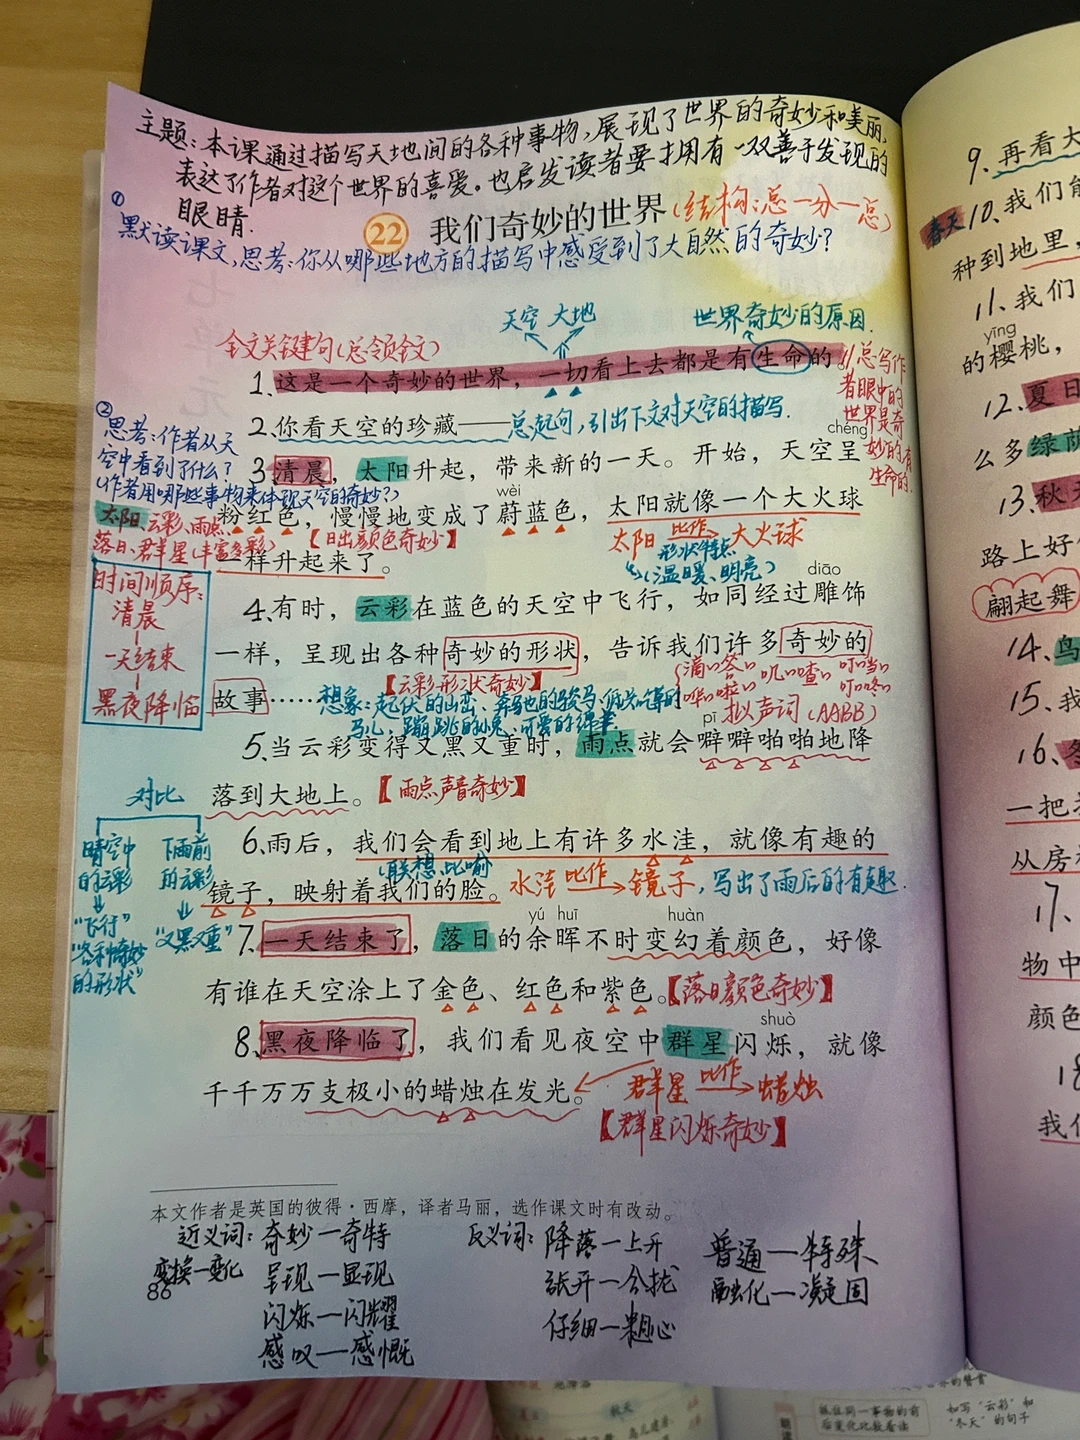 主题：本课通过描写天地间的各种事物，展现了世界的奇妙和美丽，
表达了作者对这个世界的喜爱。也启发读者要拥有一双善于发现的
眼睛.
22 我们奇妙的世界(结构：总一分一总)
①
默读课文，思考：你从哪些地方的描写中感受到了大自然的奇妙？
天空 大地
世界奇妙的原因.
全文关键句(总领全文)
1、这是一个奇妙的世界，一切看上去都是有生命的。
总写作
者眼中的
世界是奇
妙的有
生命的.
2、你看天空的珍藏——总起句，引出下文对天空的描写.
②
思考：作者从天
空中看到了什么？
(作者用哪些事物来体现天空的奇妙？)
太阳、云彩、雨点、
落日、群星(丰富多彩)
chéng
3、清晨，太阳升起，带来新的一天。开始，天空呈
wèi
粉红色，慢慢地变成了蔚蓝色，太阳就像一个大火球
【日出颜色奇妙】
太阳 比作 大火球
形状特点
(温暖、明亮)
一样升起来了。
时间顺序：
清晨
一天结束
黑夜降临
diāo
4、有时，云彩在蓝色的天空中飞行，如同经过雕饰
一样，呈现出各种奇妙的形状，告诉我们许多奇妙的
【云彩形状奇妙】
故事……
想象：起伏的山峦、奔驰的骏马、
蹦跳的小兔、可爱的绵羊.
拟声词(AABB)
pī
5、当云彩变得又黑又重时，雨点就会噼噼啪啪地降
落到大地上。【雨点声音奇妙】
对比
晴空中
的云彩
“飞行”
“各种奇妙
的形状”
下雨前
的云彩
“又黑又重”
6、雨后，我们会看到地上有许多水洼，就像有趣的
(联想、比喻)
镜子，映射着我们的脸。水洼 比作 镜子，写出了雨后的有趣.
yú huī huàn
7、一天结束了，落日的余晖不时变幻着颜色，好像
有谁在天空涂上了金色、红色和紫色。【落日颜色奇妙】
shuò
8、黑夜降临了，我们看见夜空中群星闪烁，就像
千千万万支极小的蜡烛在发光。群星 比作 蜡烛
【群星闪烁奇妙】
本文作者是英国的彼得·西摩，译者马丽，选作课文时有改动。
近义词：奇妙一奇特
变换一变化
呈现一显现
闪烁一闪耀
感叹一感慨
反义词：降落一上升
张开一合拢
仔细一粗心
普通一特殊
融化一凝固
86
9、再看大
春天10、我们能
种到地里，
11、我们
yīng
的樱桃，
12、夏日
么多绿荫
13、秋天
路上好像
翩起舞
14、鸟
15、我
16、冬
一把
从房
17、
物中
颜色
18
我们
抓住同一事物的前
后变化比较着读
如写“云彩”和
“冬天”的句子